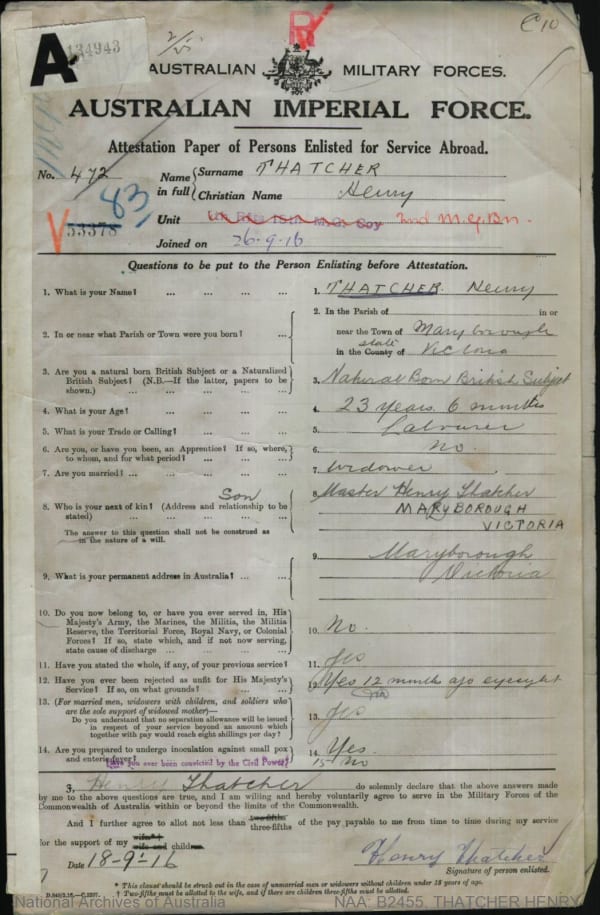 C 10
A 134943
AUSTRALIAN MILITARY FORCES.
AUSTRALIAN IMPERIAL FORCE.
Attestation Paper of Persons Enlisted for Service Abroad.
No. 472
Name in full { Surname THATCHER
Christian Name Henry
83
V 53378
Unit 2nd M.G. Bn.
Joined on 26-9-16
Questions to be put to the Person Enlisting before Attestation.
1. What is your Name? ... ... ... ... 1. THATCHER. Henry
2. In or near what Parish or Town were you born? ... 2. In the Parish of in or
near the Town of Maryborough
state
in the County of Victoria
3. Are you a natural born British Subject or a Naturalized
British Subject? (N.B.—If the latter, papers to be
shown.) ... ... ... ... ... 3. Natural Born British Subject
4. What is your Age? ... ... ... ... 4. 23 years. 6 months
5. What is your Trade or Calling? ... ... ... 5. Labourer
6. Are you, or have you been, an Apprentice? If so, where,
to whom, and for what period? ... ... ... 6. no.
7. Are you married? ... ... ... ... 7. widower
Son
8. Who is your next of kin? (Address and relationship to be
stated) ... ... ... ... 8. Master Henry Thatcher
MARYBOROUGH
VICTORIA
The answer to this question shall not be construed as
in the nature of a will.
9. What is your permanent address in Australia? ... ... 9. Maryborough
Victoria
10. Do you now belong to, or have you ever served in, His
Majesty's Army, the Marines, the Militia, the Militia
Reserve, the Territorial Force, Royal Navy, or Colonial
Forces? If so, state which, and if not now serving,
state cause of discharge ... ... ... 10. No.
11. Have you stated the whole, if any, of your previous service? 11. Yes
12. Have you ever been rejected as unfit for His Majesty's
Service? If so, on what grounds? ... ... 12. Yes 12 months ago eyesight
13. (For married men, widowers with children, and soldiers who
are the sole support of widowed mother)—
Do you understand that no separation allowance will be issued
in respect of your service beyond an amount which
together with pay would reach eight shillings per day? 13. Yes
14. Are you prepared to undergo inoculation against small pox
and enteric fever? 14. Yes.
Have you ever been convicted by the Civil Power? 15 No
3, Henry Thatcher do solemnly declare that the above answers made
by me to the above questions are true, and I am willing and hereby voluntarily agree to serve in the Military Forces of the
Commonwealth of Australia within or beyond the limits of the Commonwealth.
And I further agree to allot not less than two-fifths three-fifths of the pay payable to me from time to time during my service
for the support of my wife* wife and children.
Date 18-9-16
Henry Thatcher
Signature of person enlisted.
* This clause should be struck out in the case of unmarried men or widowers without children under 18 years of age.
† Two-fifths must be allotted to the wife, and if there are children three-fifths must be allotted.
National Archives of Australia
NAA: B2455, THATCHER HENRY